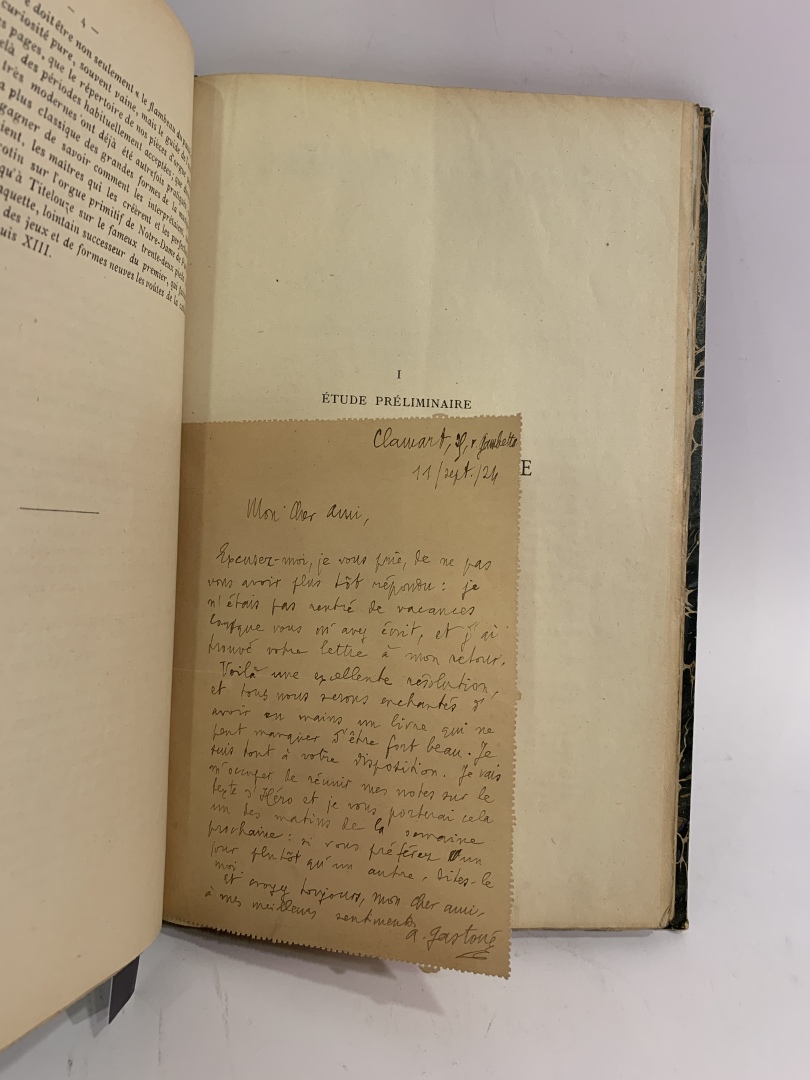 — 4 —
doit être non seulement « le
curiosité pure, souvent vaine, mais le guide de
pages, que le répertoire de nos pièces d'orgue
delà des périodes habituellement acceptées, que
très modernes ont déjà été autrefois
plus classique des grandes formes de la
gagner de savoir comment les
les maîtres qui les créèrent et les
sur l'orgue primitif de Notre-Dame de
qu'à Titelouze sur le fameux trente-deux pieds
lointain successeur du premier, qui
des jeux et de formes neuves les voûtes de la
uis XIII.
I
ÉTUDE PRÉLIMINAIRE
E
Clamart, r Gambetta
11/sept./24
Mon cher ami,
Excusez-moi, je vous prie, de ne pas
vous avoir plus tôt répondu : je
n'étais pas rentré de vacances
lorsque vous m'avez écrit, et j'ai
trouvé votre lettre à mon retour.
Voilà une excellente résolution,
et tous nous serons enchantés d'
avoir en mains un livre qui ne
peut manquer d'être fort beau. Je
suis tout à votre disposition. Je vais
m'occuper de réunir mes notes sur le
texte d'Héro et je vous porterai cela
un des matins de la semaine
prochaine : si vous préférez un
jour plutôt qu'un autre, dites-le
moi.
et croyez toujours, mon cher ami,
à mes meilleurs sentiments
A. Gastoué